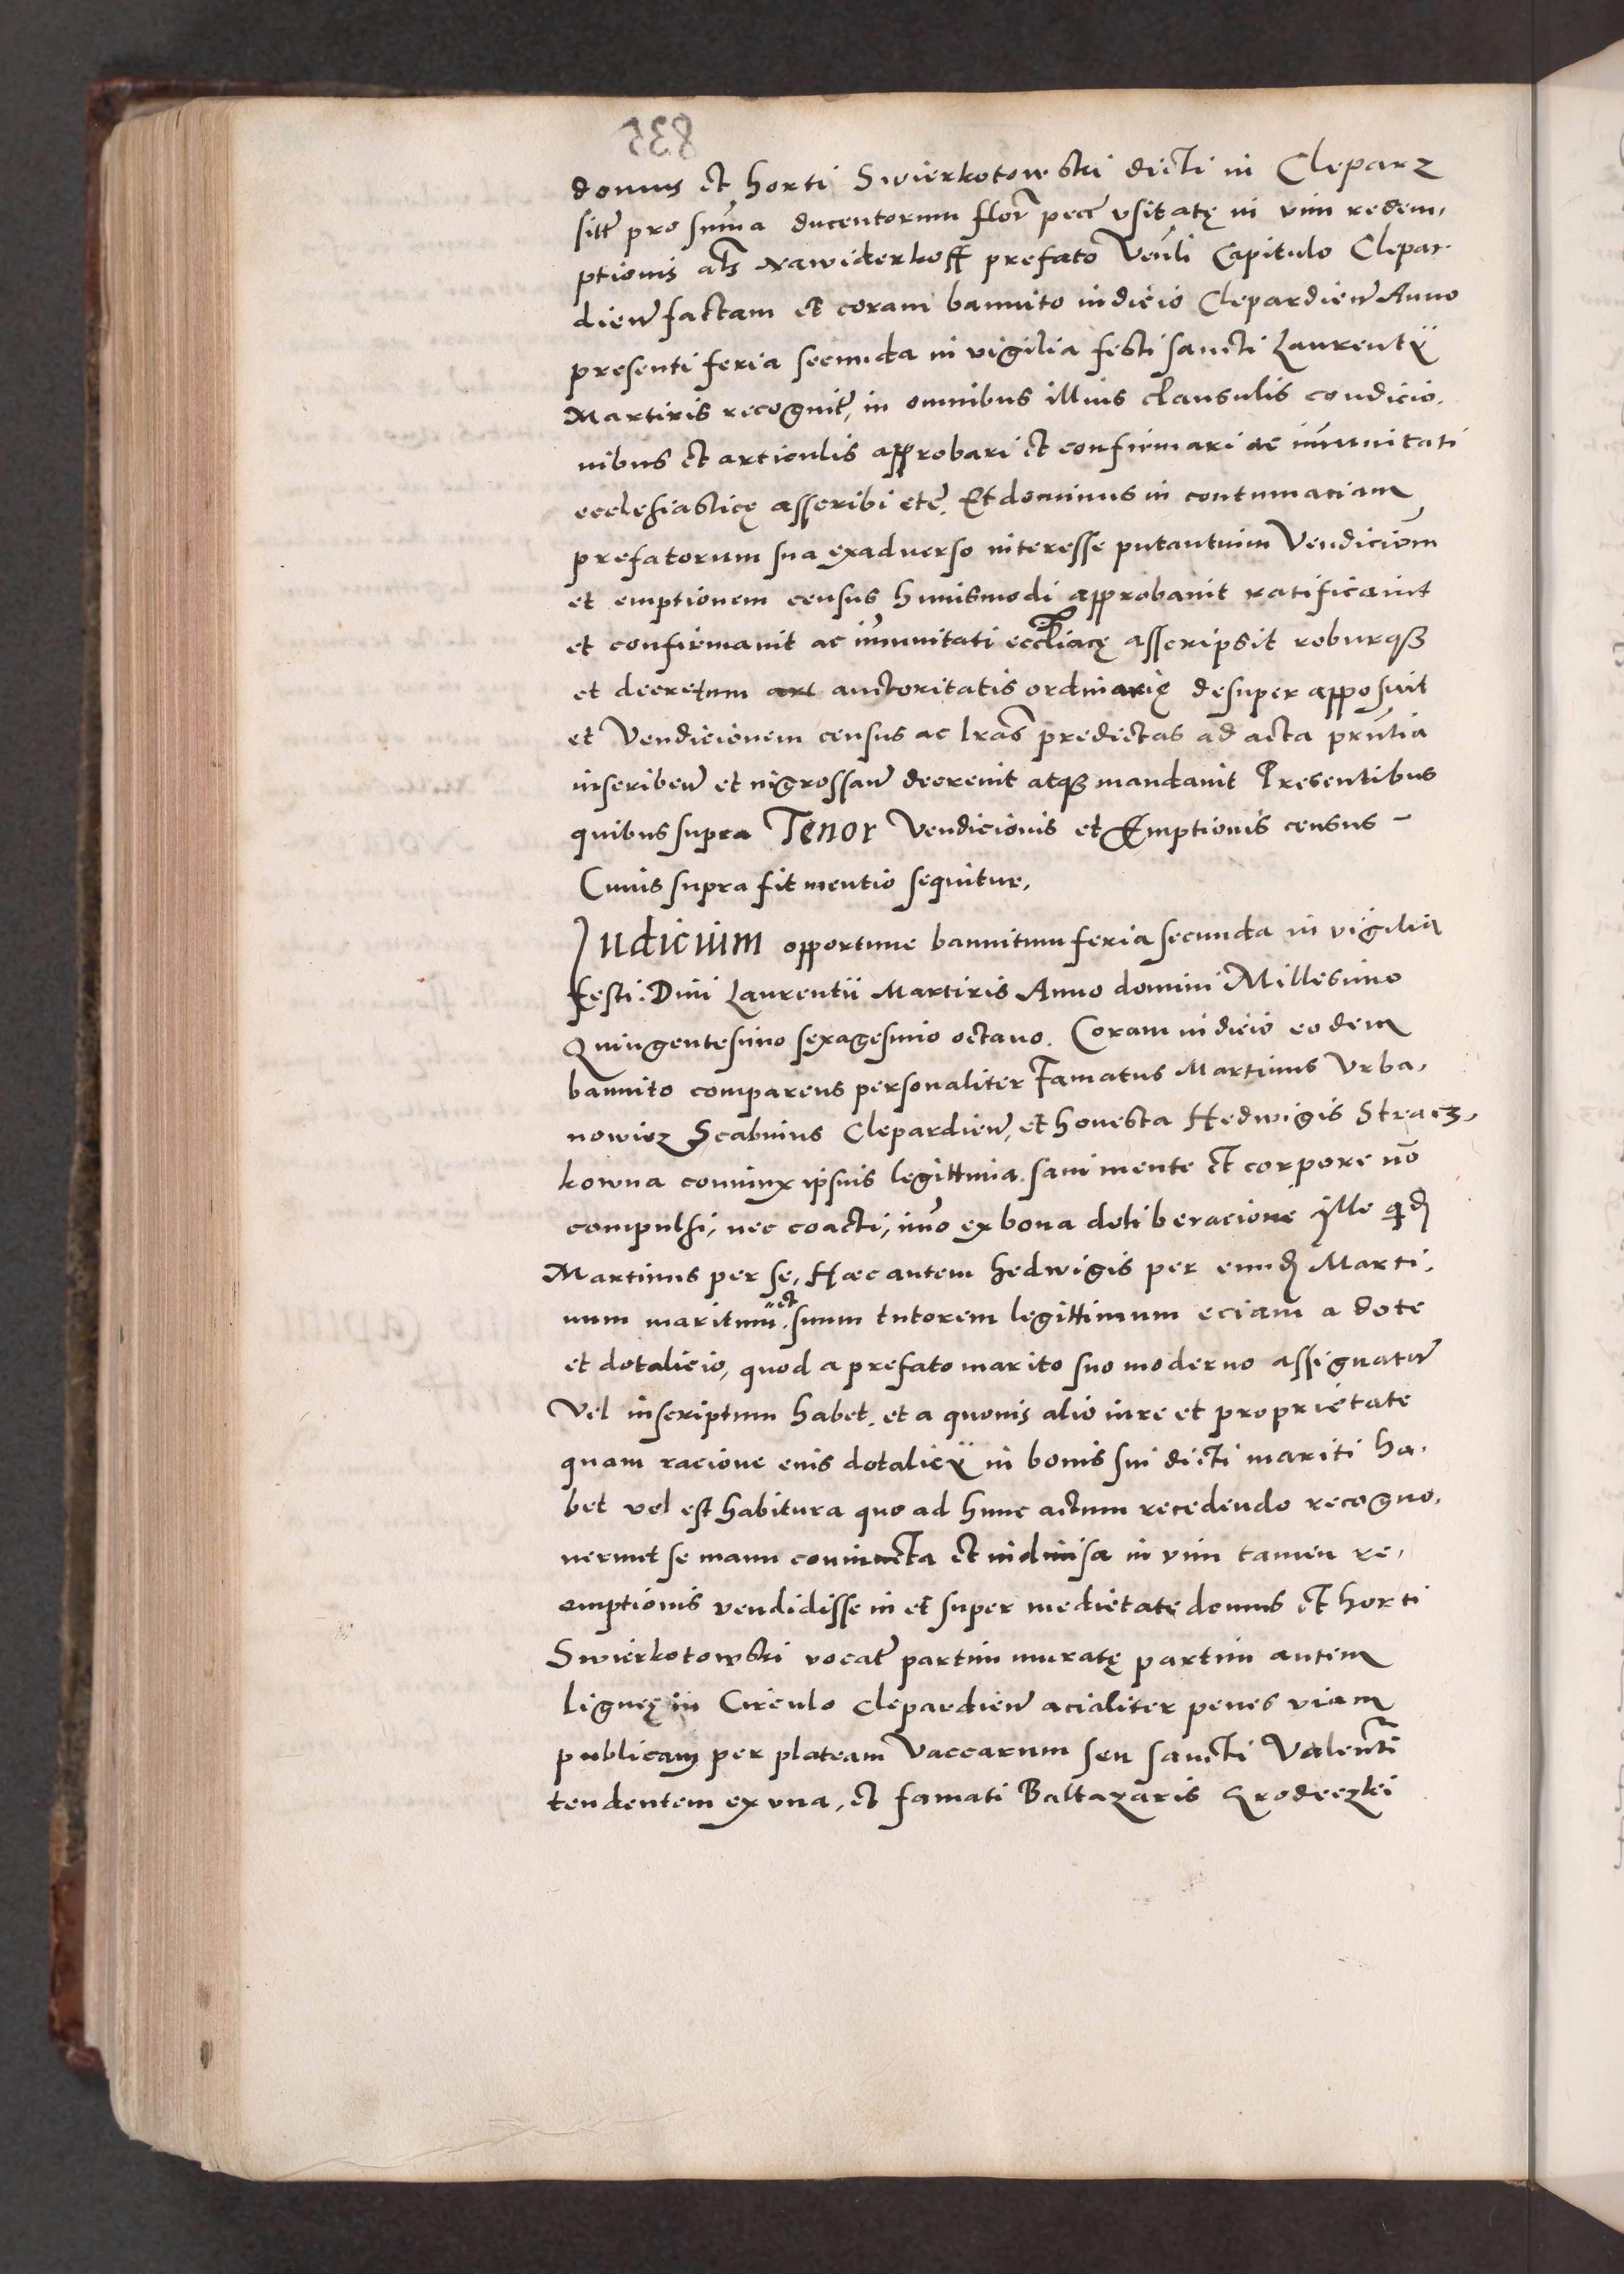 domus et horti Swierkotowski dicti in Cleparz
sitt pro suma ducentorum flor pecc usitatę in vim redem,
ptionis als nawiderkoff prefato Venli Capitulo Clepar
dien factam et coram bannito iudicio Clepardien Anno
presenti feria secunda in vigilia festi sancti Laurentÿ
Martiris recognit, in omnibus illius clausulis condicio,
nibus et articulis approbari et confirmari ac imunitati
ecclesiasticę asscribi etc. Et dominus in contumaciam
prefatorum sua exadverso interesse putantium Vendiciom
et emptionem census huiusmodi approbavit ratificavit
et confirmavit ac imunitati eccliacę asscripsit roburqȝ
et decretum auctoritatis ordinarię desuper apposuit
et Vendicionem census ac lras predictas ad acta prntia
inscriben et ingrossan decrevit atqȝ mandavit Presentibus
quibus supra Tenor Vendicionis et Emptionis census -
Cuius supra fit mentio sequitur,
Iudicium opportune bannitum feria secunda in vigilia
festi Divi Laurentii Martiris Anno domini Millesimo
Quingentesimo sexagesimo octavo. Coram iudicio eodem
bannito comparens personaliter Famatus Martinus Urba,
nowicz Scabinus Clepardien, et honesta Hedwigis Stracz,
kowna coniunx ipsius legittima. sani mente et corpore no
compulsi, nec coacti, imo ex bona deliberacione ille qd
Martinus per se, Hæc autem hedwigis per eund Marti,
num maritum et suum tutorem legittimum eciam a dote
et dotalicio, quod a prefato marito suo moderno assignatu
Vel inscriptum habet. et a quovis alio iure et proprietate
quam racione eius dotalicÿ in bonis sui dicti mariti ha,
bet vel est habitura quo ad hunc actum recedendo recogno,
verunt se manu coniuncta et indivisa in vim tamen re,
emptionis vendidisse in et super medietate domus et horti
Swierkotowski vocat partim muratę partim autem
ligneę in Circulo Clepardien acialiter penes viam
publicam per plateam Vaccarum seu sancti Valenti
tendentem ex una, et famati Baltazaris Grodeczki